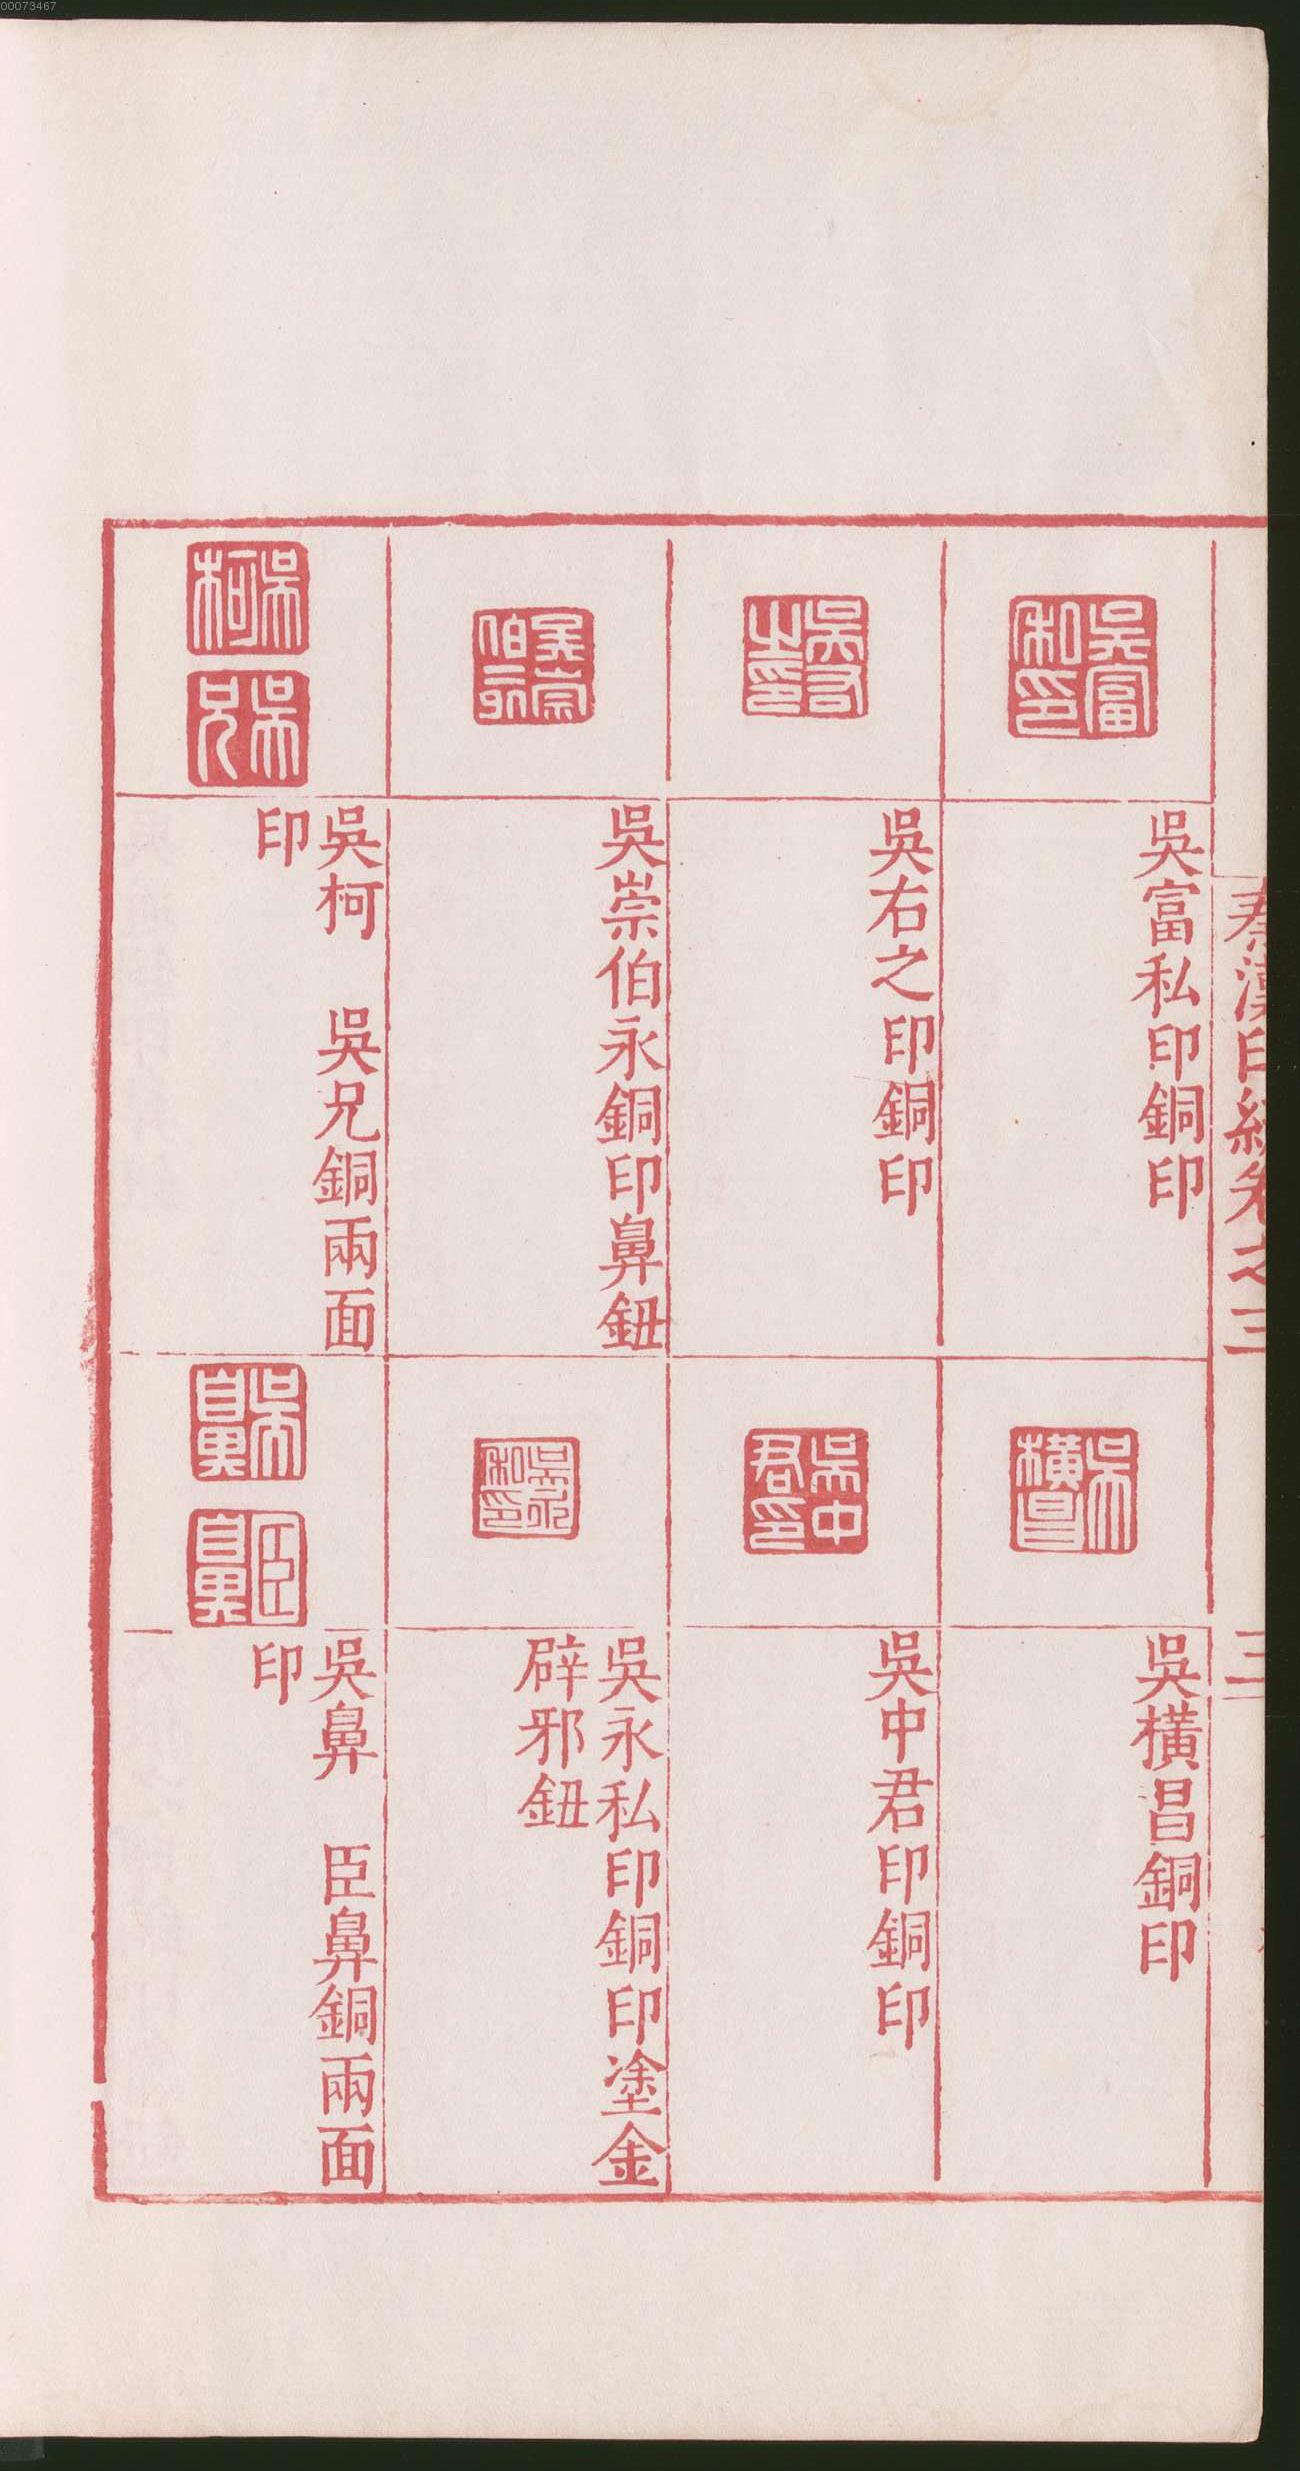 00073467
秦漢印統卷之三
三
吳富私印
吳富私印銅印
吳橫昌
吳橫昌銅印
吳右之印
吳右之印銅印
吳中君印
吳中君印銅印
吳崇伯永
吳崇伯永銅印鼻鈕
吳永私印
吳永私印銅印塗金
辟邪鈕
吳柯
吳兄
吳柯　吳兄銅兩面
印
吳鼻
臣鼻
吳鼻　臣鼻銅兩面
印